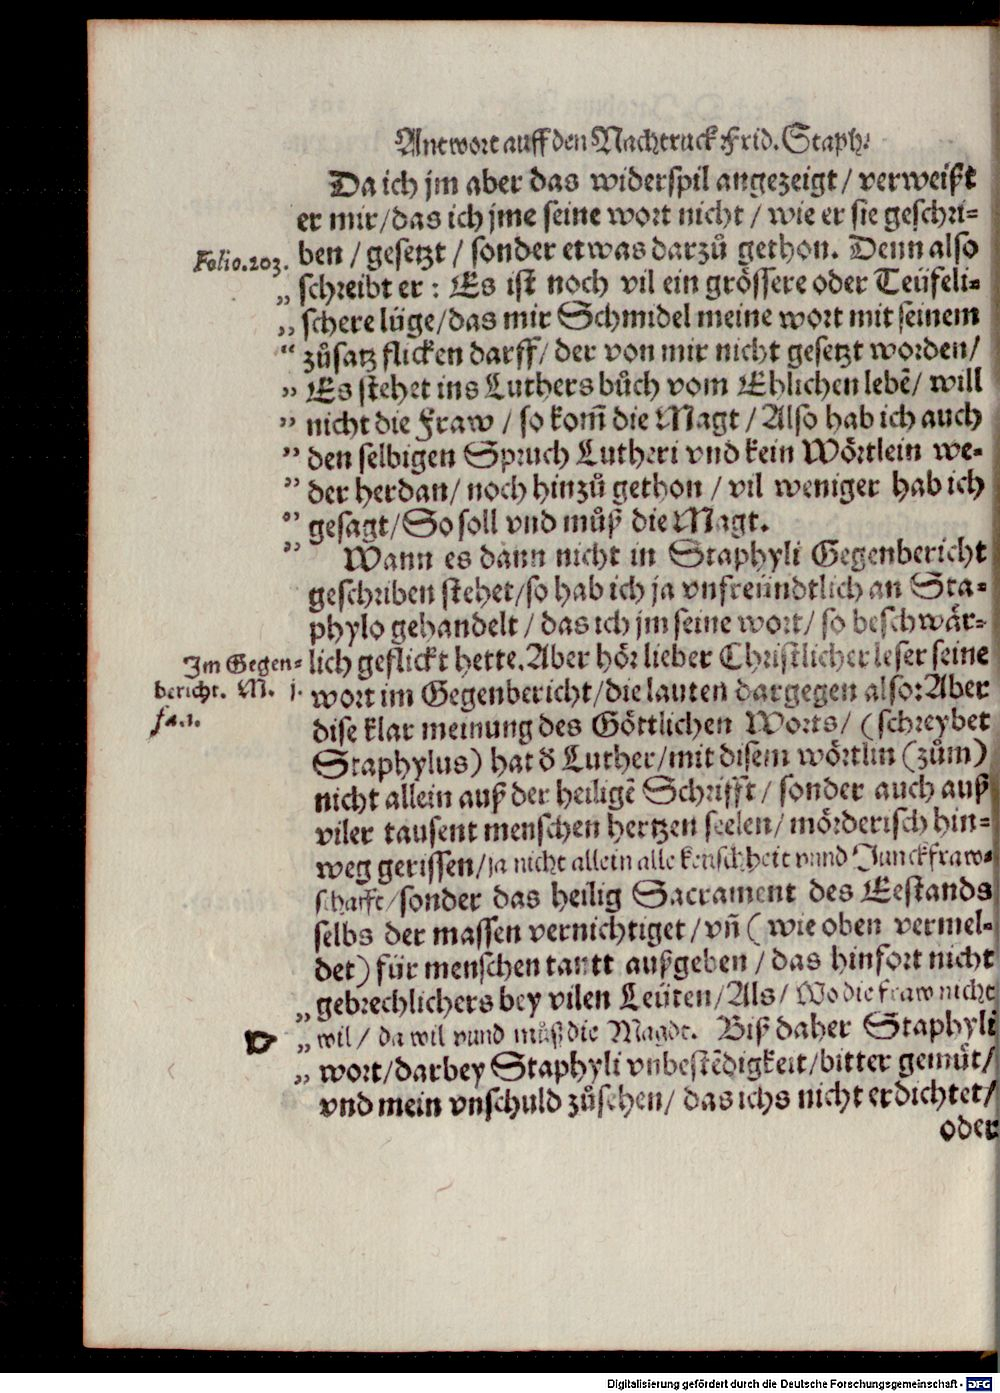 Antwort auff den Nachtruck Frid. Staph:
Da ich jm aber das widerspil angezeigt / verweißt
er mir / das ich jme seine wort nicht / wie er sie geschri=
Folio.203. ben / gesetzt / sonder etwas darzů gethon. Denn also
„ schreibt er : Es ist noch vil ein grössere oder Teüfeli=
„ schere lüge / das mir Schmidel meine wort mit seinem
“ zůsatz flicken darff / der von mir nicht gesetzt worden /
” Es stehet ins Luthers bůch vom Ehlichen lebẽ / will
” nicht die Fraw / so kom̃ die Magt / Also hab ich auch
” den selbigen Spruch Lutheri vnd kein Wörtlein we=
” der herdan / noch hinzů gethon / vil weniger hab ich
” gesagt / So soll vnd můß die Magt.
” Wann es dann nicht in Staphyli Gegenbericht
geschriben stehet / so hab ich ja vnfreündtlich an Sta=
phylo gehandelt / das ich jm seine wort / so beschwär=
Im Gegen= lich geflickt hette. Aber hör lieber Christlicher leser seine
bericht. M. j. wort im Gegenbericht / die lauten dargegen also: Aber
fa.1. dise klar meinung des Göttlichen Worts / (schreybet
Staphylus) hat d̓ Luther / mit disem wörtlin (zům)
nicht allein auß der heiligẽ Schrifft / sonder auch auß
viler tausent menschen hertzen seelen / mörderisch hin=
weg gerissen / ja nicht allein alle keuschheit vnnd Junckfraw=
schafft / sonder das heilig Sacrament des Eestands
selbs der massen vernichtiget / vñ ( wie oben vermel=
det) für menschen tantt außgeben / das hinfort nicht
„ gebrechlichers bey vilen Leüten / Als / Wo die fraw nicht
„ wil / da wil vnnd můß die Magdt. Biß daher Staphyli
„ wort / darbey Staphyli vnbestẽdigkeit / bitter gemüt /
vnd mein vnschuld zůsehen / das ichs nicht erdichtet /
oder
Digitalisierung gefördert durch die Deutsche Forschungsgemeinschaft - DFG